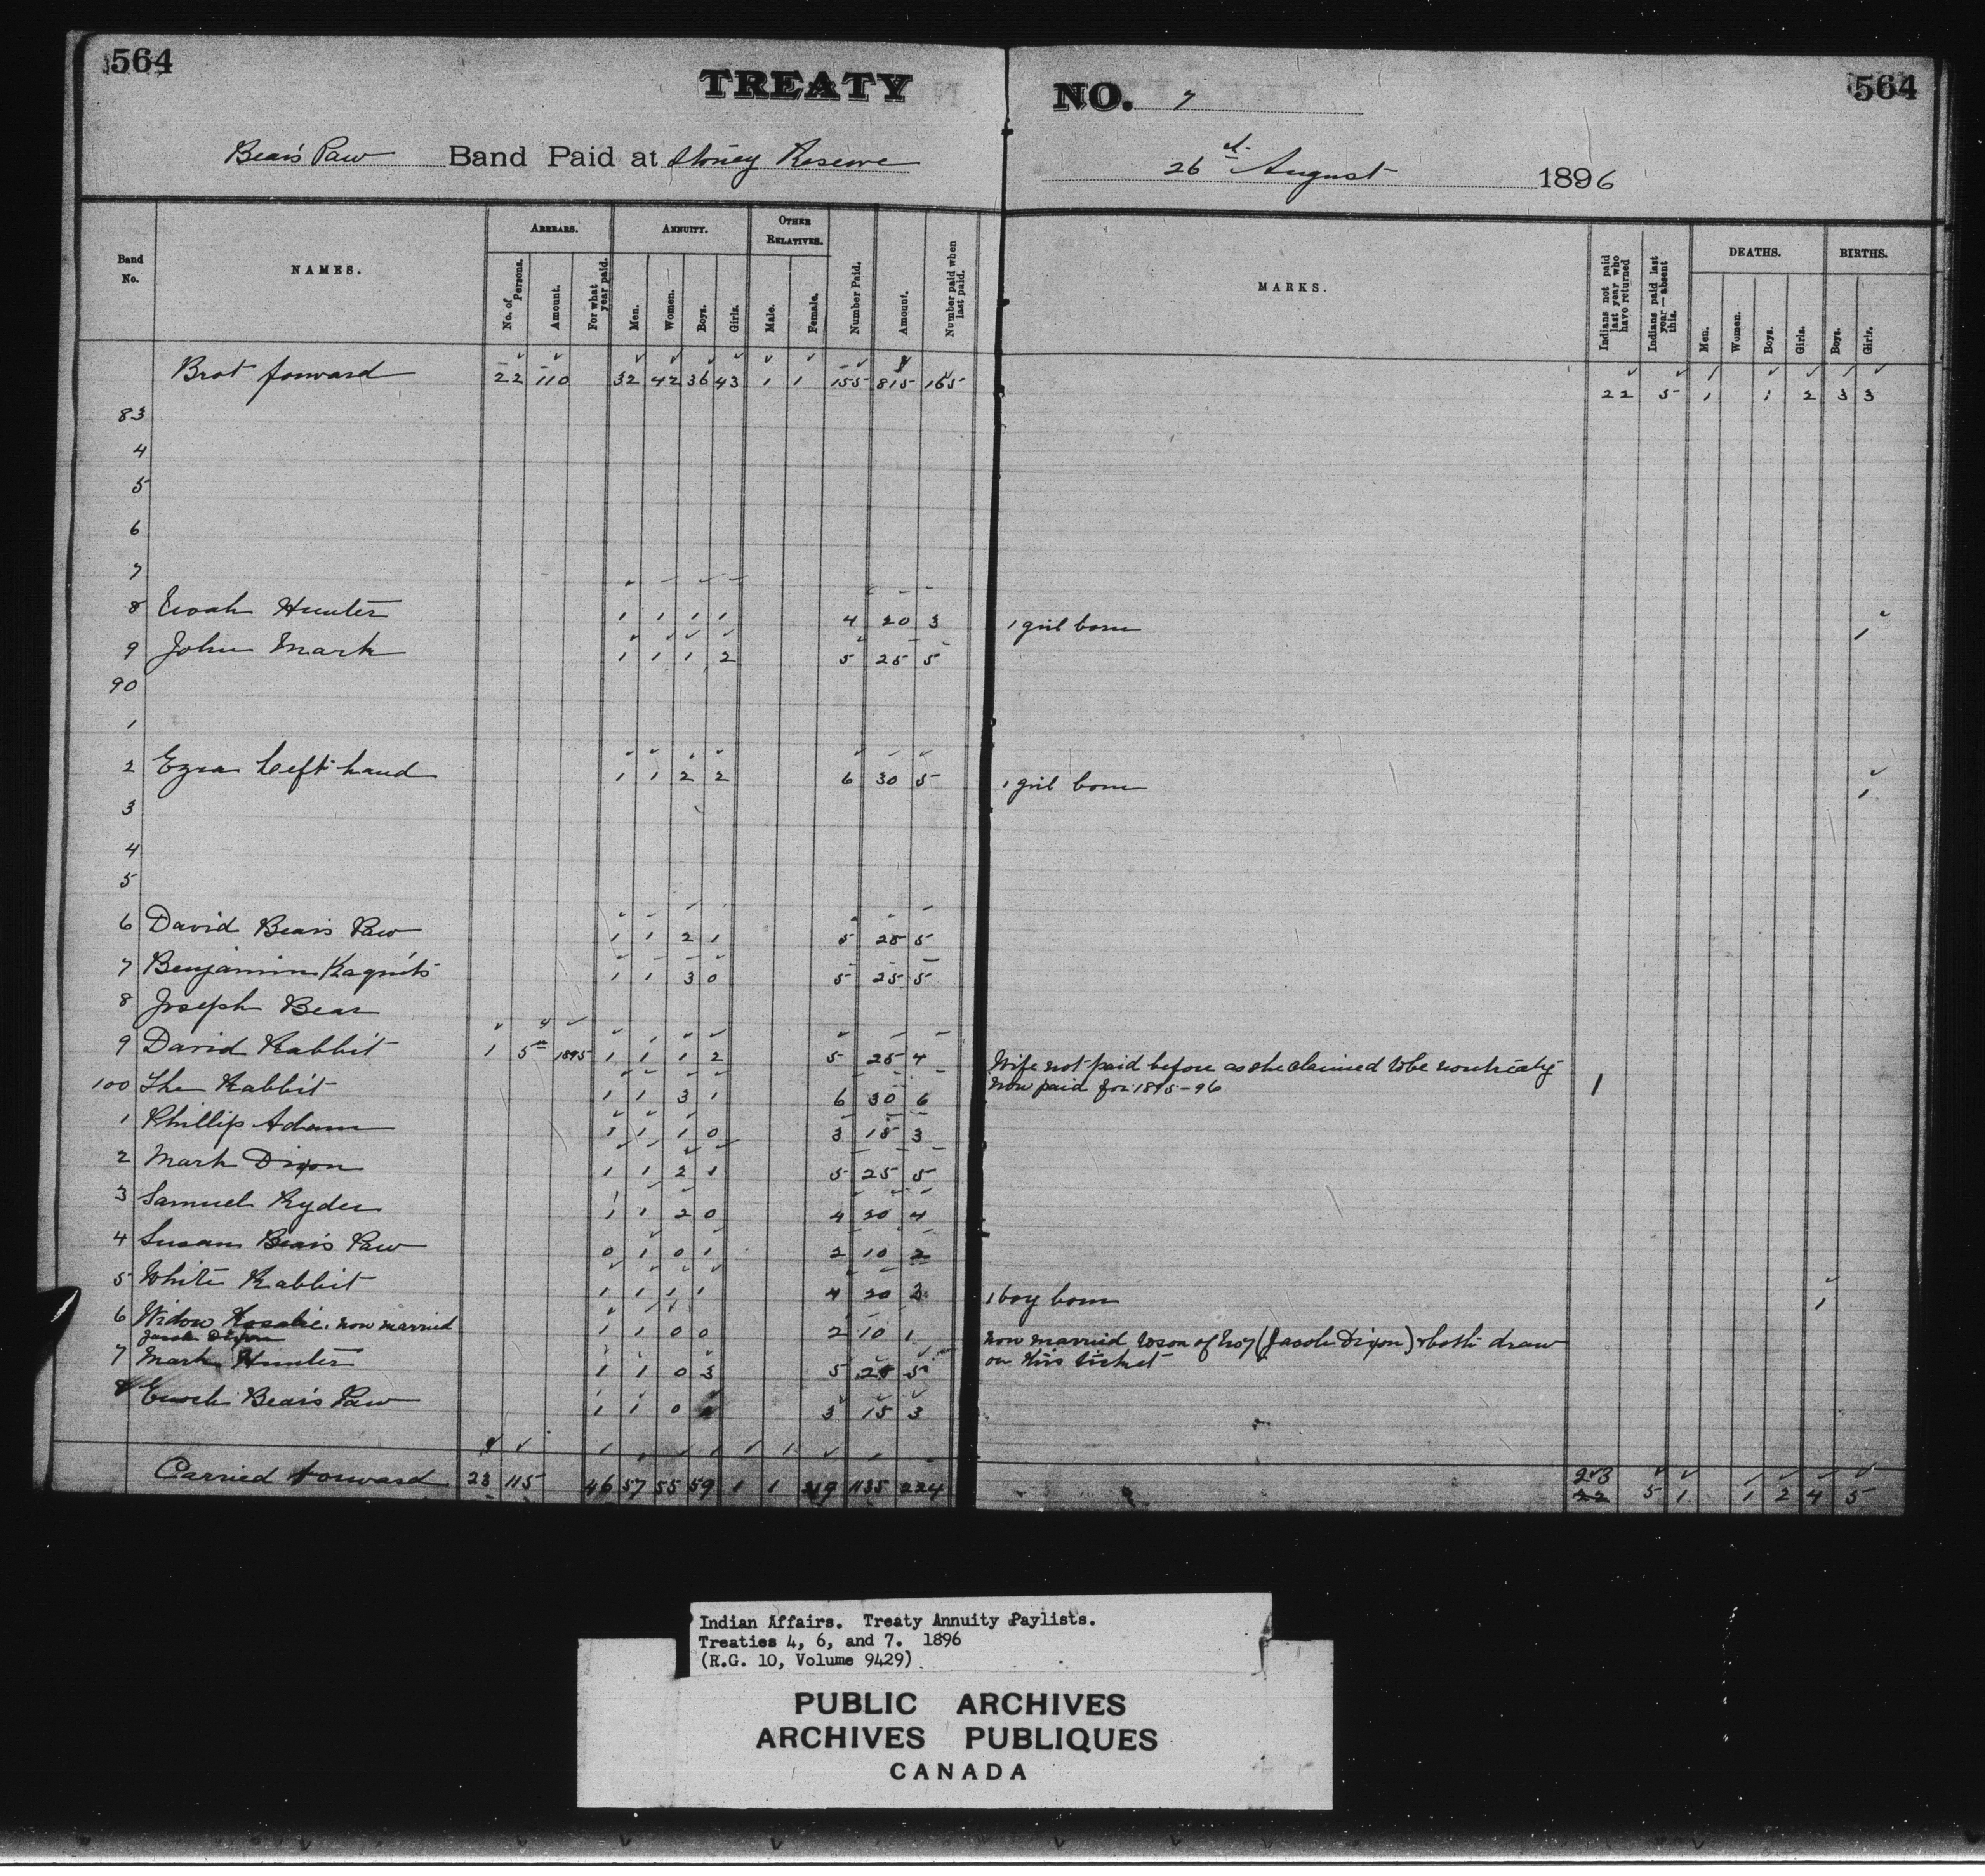 564
TREATY NO. 7
564
Bear's Paw Band Paid at Stoney Reserve
26th August 1896
Band No. NAMES. ARREARS. ANNUITY. OTHER RELATIVES. Number Paid. Amount. Number paid when last paid. MARKS. Indians not paid last year who have returned Indians paid last year—absent this. DEATHS. BIRTHS.
No. of Persons. Amount. For what year paid. Men. Women. Boys. Girls. Male. Female. Men. Women. Boys. Girls. Boys. Girls.
Brot forward 22 110 32 42 36 43 1 1 155 815 165 22 5 1 1 2 3 3
83
4
5
6
7
8 Hunter 1 1 1 1 4 20 3 1 girl born 1
9 John Mark 1 1 1 2 5 25 5
90
1
2 Ezra Left hand 1 1 2 2 6 30 5 1 girl born 1
3
4
5
6 David Bear's Paw 1 1 2 1 5 25 5
7 Benjamin 1 1 3 0 5 25 5
8 Joseph Bear
9 David Rabbit 1 5 1895 1 1 1 2 5 25 4 Wife not paid before as she claimed to be nontreaty
now paid for 1895-96 1
100 The Rabbit 1 1 3 1 6 30 6
1 Phillip Adam 1 1 1 0 3 15 3
2 Mark Dixon 1 1 2 1 5 25 5
3 Samuel Ryder 1 1 2 0 4 20 4
4 Susan Bear's Paw 0 1 0 1 2 10 2
5 White Rabbit 1 1 1 1 4 20 3 1 boy born 1
6 Widow Rosalie. now married
Jacob Dixon 1 1 0 0 2 10 1 now married to son of No 7 (Jacob Dixon) & both draw
on this ticket
7 Mark Hunter 1 1 0 3 5 25 5
8 Enoch Bear's Paw 1 1 0 3 15 3
Carried forward 23 115 46 57 55 59 1 1 219 1135 224 23
22 5 1 1 2 4 5
Indian Affairs. Treaty Annuity Paylists.
Treaties 4, 6, and 7. 1896
(R.G. 10, Volume 9429)
PUBLIC ARCHIVES
ARCHIVES PUBLIQUES
CANADA